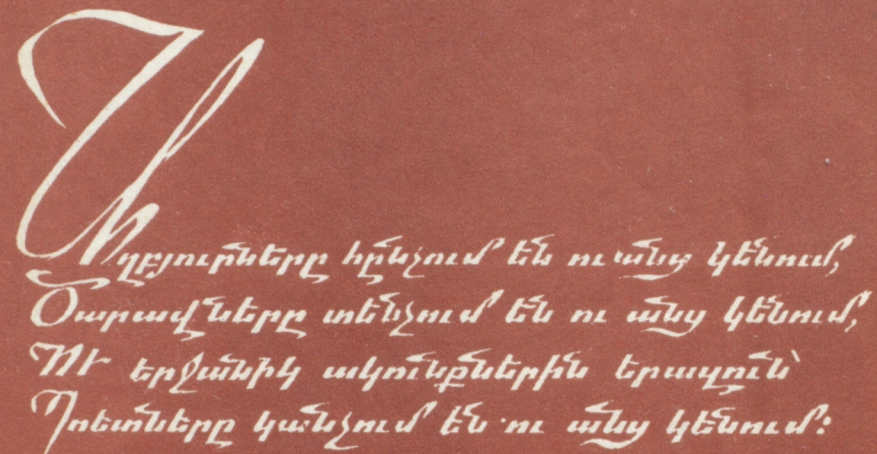 Աղբյուրները հընչում են ու անց կենում,
Ծարավները տենչում են ու անց կենում,
ՈՒ երջանիկ ակունքներին երազուն՝
Պոետները կանչում են ու անց կենում։